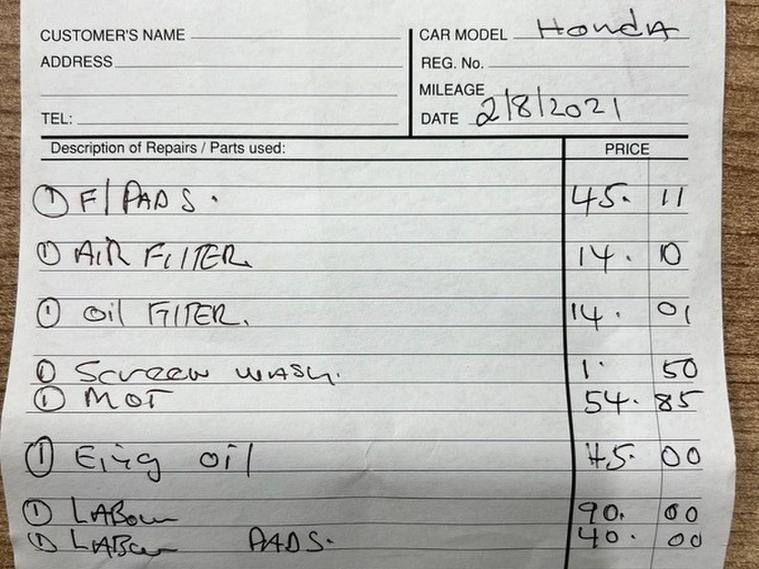 CUSTOMER'S NAME
CAR MODEL HondA
ADDRESS
REG. No.
MILEAGE
TEL:
DATE 2/8/2021
Description of Repairs / Parts used: PRICE
① F/PADS. 45. 11
① AIR FILTER. 14. 10
① Oil FILTER. 14. 01
① Screen WASH. 1. 50
① MOT 54. 85
① Eing oil 45. 00
① LABour 90. 00
① LABour PADS. 40. 00